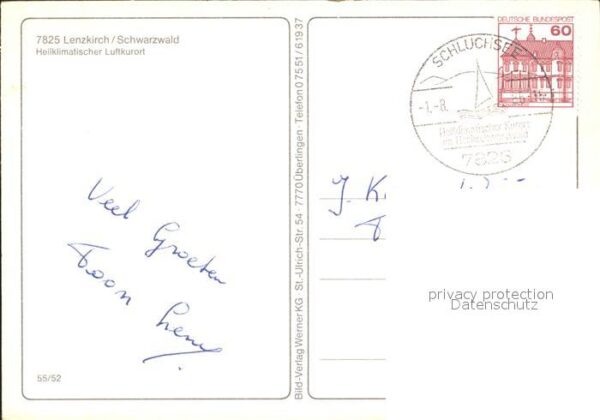 7825 Lenzkirch / Schwarzwald
Heilklimatischer Luftkurort
Veel Groeten
Toon
55/52
Bild-Verlag Werner KG · St.-Ulrich-Str. 54 · 7770 Überlingen · Telefon 07551/61937
SCHLUCHSEE
-1.-8.
Heilklimatischer Kurort
7826
DEUTSCHE BUNDESPOST
60
J. K
privacy protection
Datenschutz